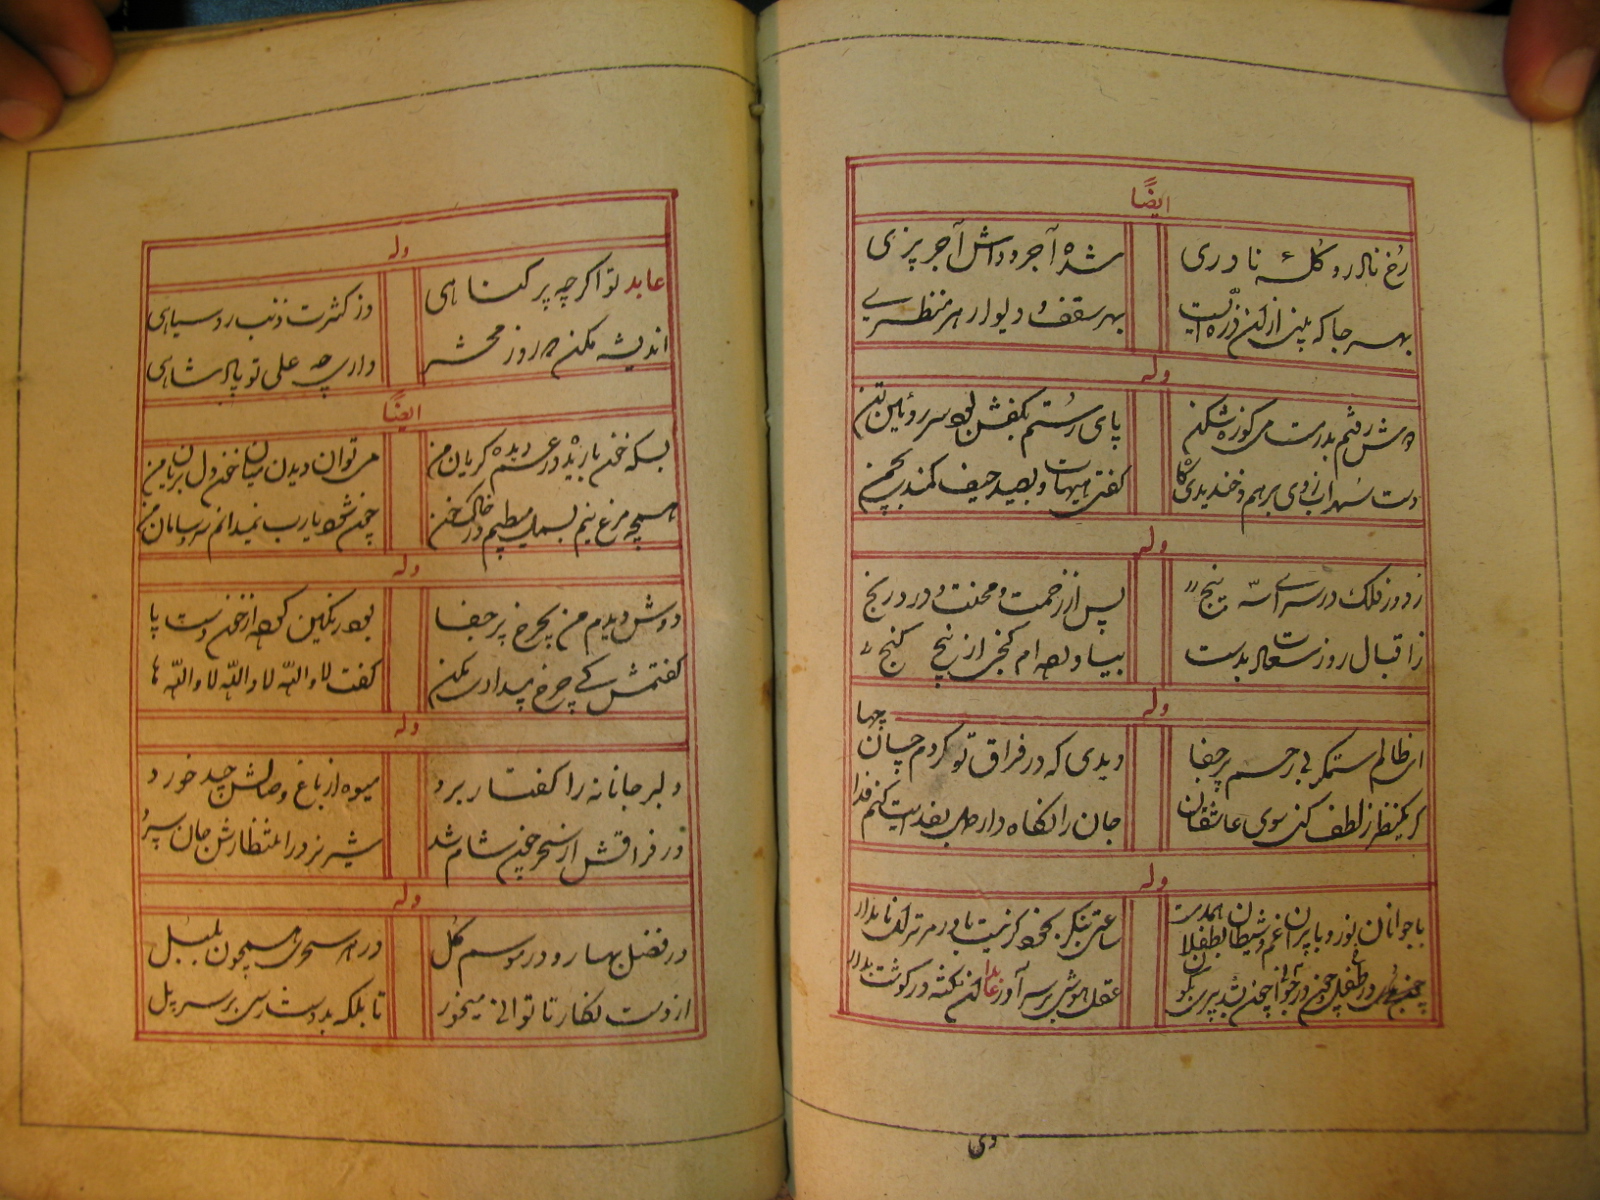 ایضا
رخ نادر و کلهٔ نادری شده آجر و داش آجر پزی
بهر جا که بینی ازین ذره ایست بهر سقف و دیوار هر منظری
وله
دوش رفتم بدرت می کوزه شکن پای رستم بکفش بود سر روئین تن
دست سهراب زدی برهم و خندیدی گفتی هیهات و بصید حیف کمند بهمن
وله
ز دور فلک در سرای سه پنج پس از زحمت و محنت و درد و رنج
ز اقبال روز سعادت بدست بیاورده ام کنجی از پنج کنج
وله
ای ظالم ستمگر بی رحم پر جفا دیدی که در فراق تو کردم چسان
چها
گر یکنظر ز لطف کنی سوی عاشقان جان را نگاه دار بفدایت کنم فدا
وله
با جوانان نور و با پیران غم و شیطان بطفلان همدست ساعتی بنگر بخود
در طفلی چون در جوانی چون شد پیری بگو عقل و هوش بر سر آور عابدا این نکته در گوشت بدار
دی
وله
عابد تو اگر چه پر گناهی وز کثرت ذنب رو سیاهی
اندیشه مکن ز روز محشر داری چه علی تو پادشاهی
ایضا
بسکه خون بارید در غم دیده گریان من می توان دیدن میان خون دل بریان من
همچو مرغ نیم بسمل میطپم در خاک خون چون شود یارب نمیدانم سر و سامان من
وله
دوش دیدم من بچرخ پر جفا بود رنگین کوه از خون دست پا
گفتمش کی چرخ بیدادی مکن گفت لا والله لا والله لا والله ها
وله
دلبر جانانه را گفتار برد میوه از باغ وصالش چید خورد
در فراقش از سحر خون شام شد شیر نر در انتظارش جان سپرد
وله
در فصل بهار و در موسم گل در هر سحری همچون بلبل
از دست نگار تا توانی میخور تا بلکه بدوشت رسی بر سر پل